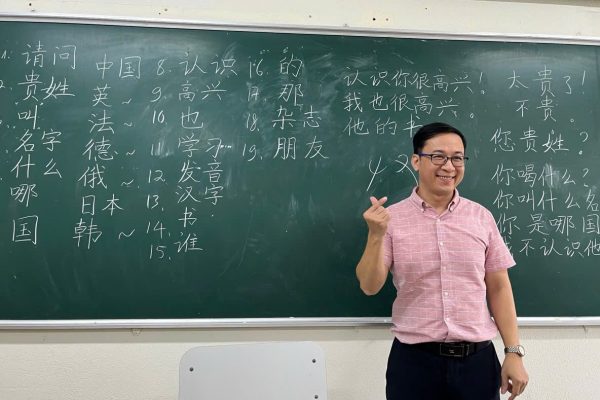 1. 请问
贵姓
叫
名字
什么
哪
国
中国
英~
法~
德~
俄~
日本
韩~
8. 认识
9. 高兴
10. 也
11. 学习
12. 发音
13. 汉字
14. 书
15. 谁
16. 的
17. 那
18. 杂志
19. 朋友
认识你很高兴!
我也很高兴。
他的书
太贵了!
不贵。
您贵姓?
你喝什么?
你叫什么名
你是哪国
不认识他